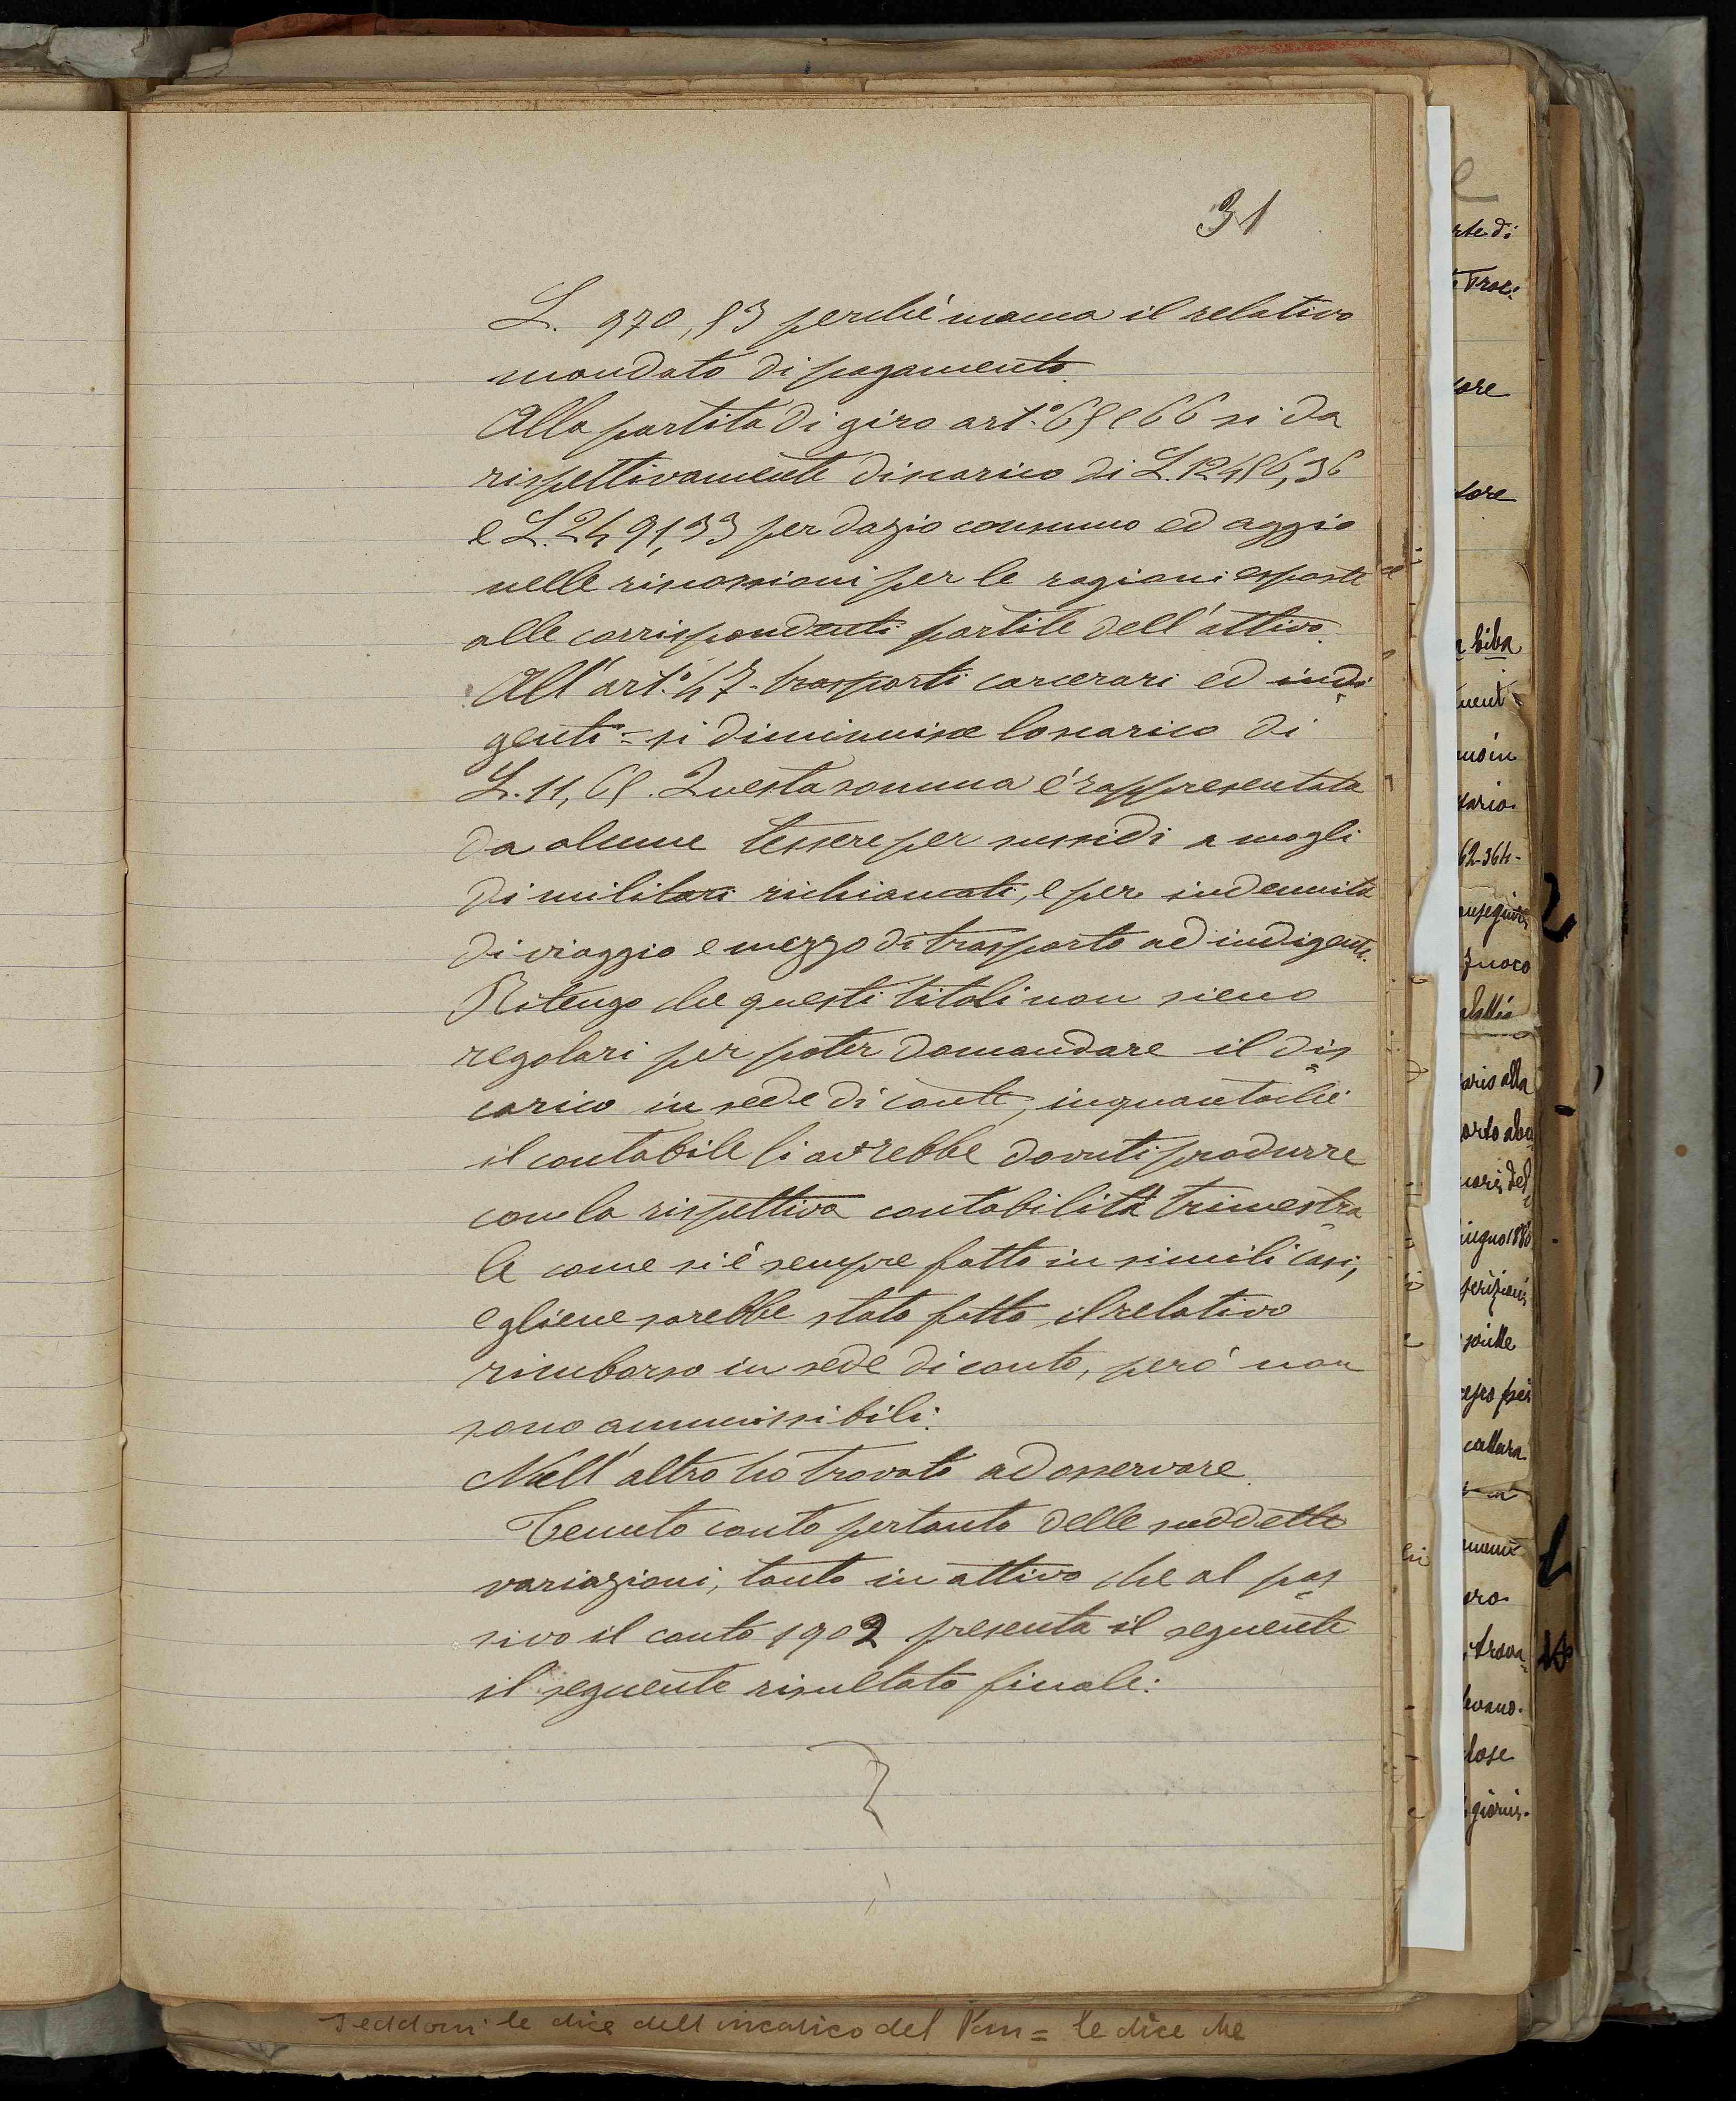 31
L. 970,53 perché manca il relativo
mandato di pagamento.
Alla partita di giro art.° 65 e 66 si da
rispettivamente discarico di L. 12456,36
e L. 2491,33 per dazio consumo ed aggio
nelle riscossioni per le ragioni esposte
alle corrispondenti partite dell'attivo.
All'art.° 47 - trasporti carcerari ed indi
genti = si diminuisce lo scarico di
L. 11,65. Questa somma é rappresentata
da alcune tessere per sussidi a mogli
di militari richiamati, e per indennita
di viaggio e mezzo di trasporto ad indigenti.
Ritengo che questi titoli non sieno
regolari per poter domandare il dis
carico in sede di conto, inquantoché
il contabile li avrebbe dovuti produrre
con la rispettiva contabilità trimestra
le come si é sempre fatto in simili casi,
e gliene sarebbe stato fatto il relativo
rimborso in sede di conto, peró non
sono ammissibili.
Null'altro ho trovato ad osservare.
Tenuto conto pertanto delle suddette
variazioni, tanto in attivo che al pas
sivo il conto 1902 presenta il seguente
il seguente risultato finale:
rte di
ore
tore
biba
ment
no in
tario
62-364-
Zuoco
ario alla
iugno 188
cattura
ero
trova
levano.
lose
giorni.
le dice dell'incarico del = le dice che